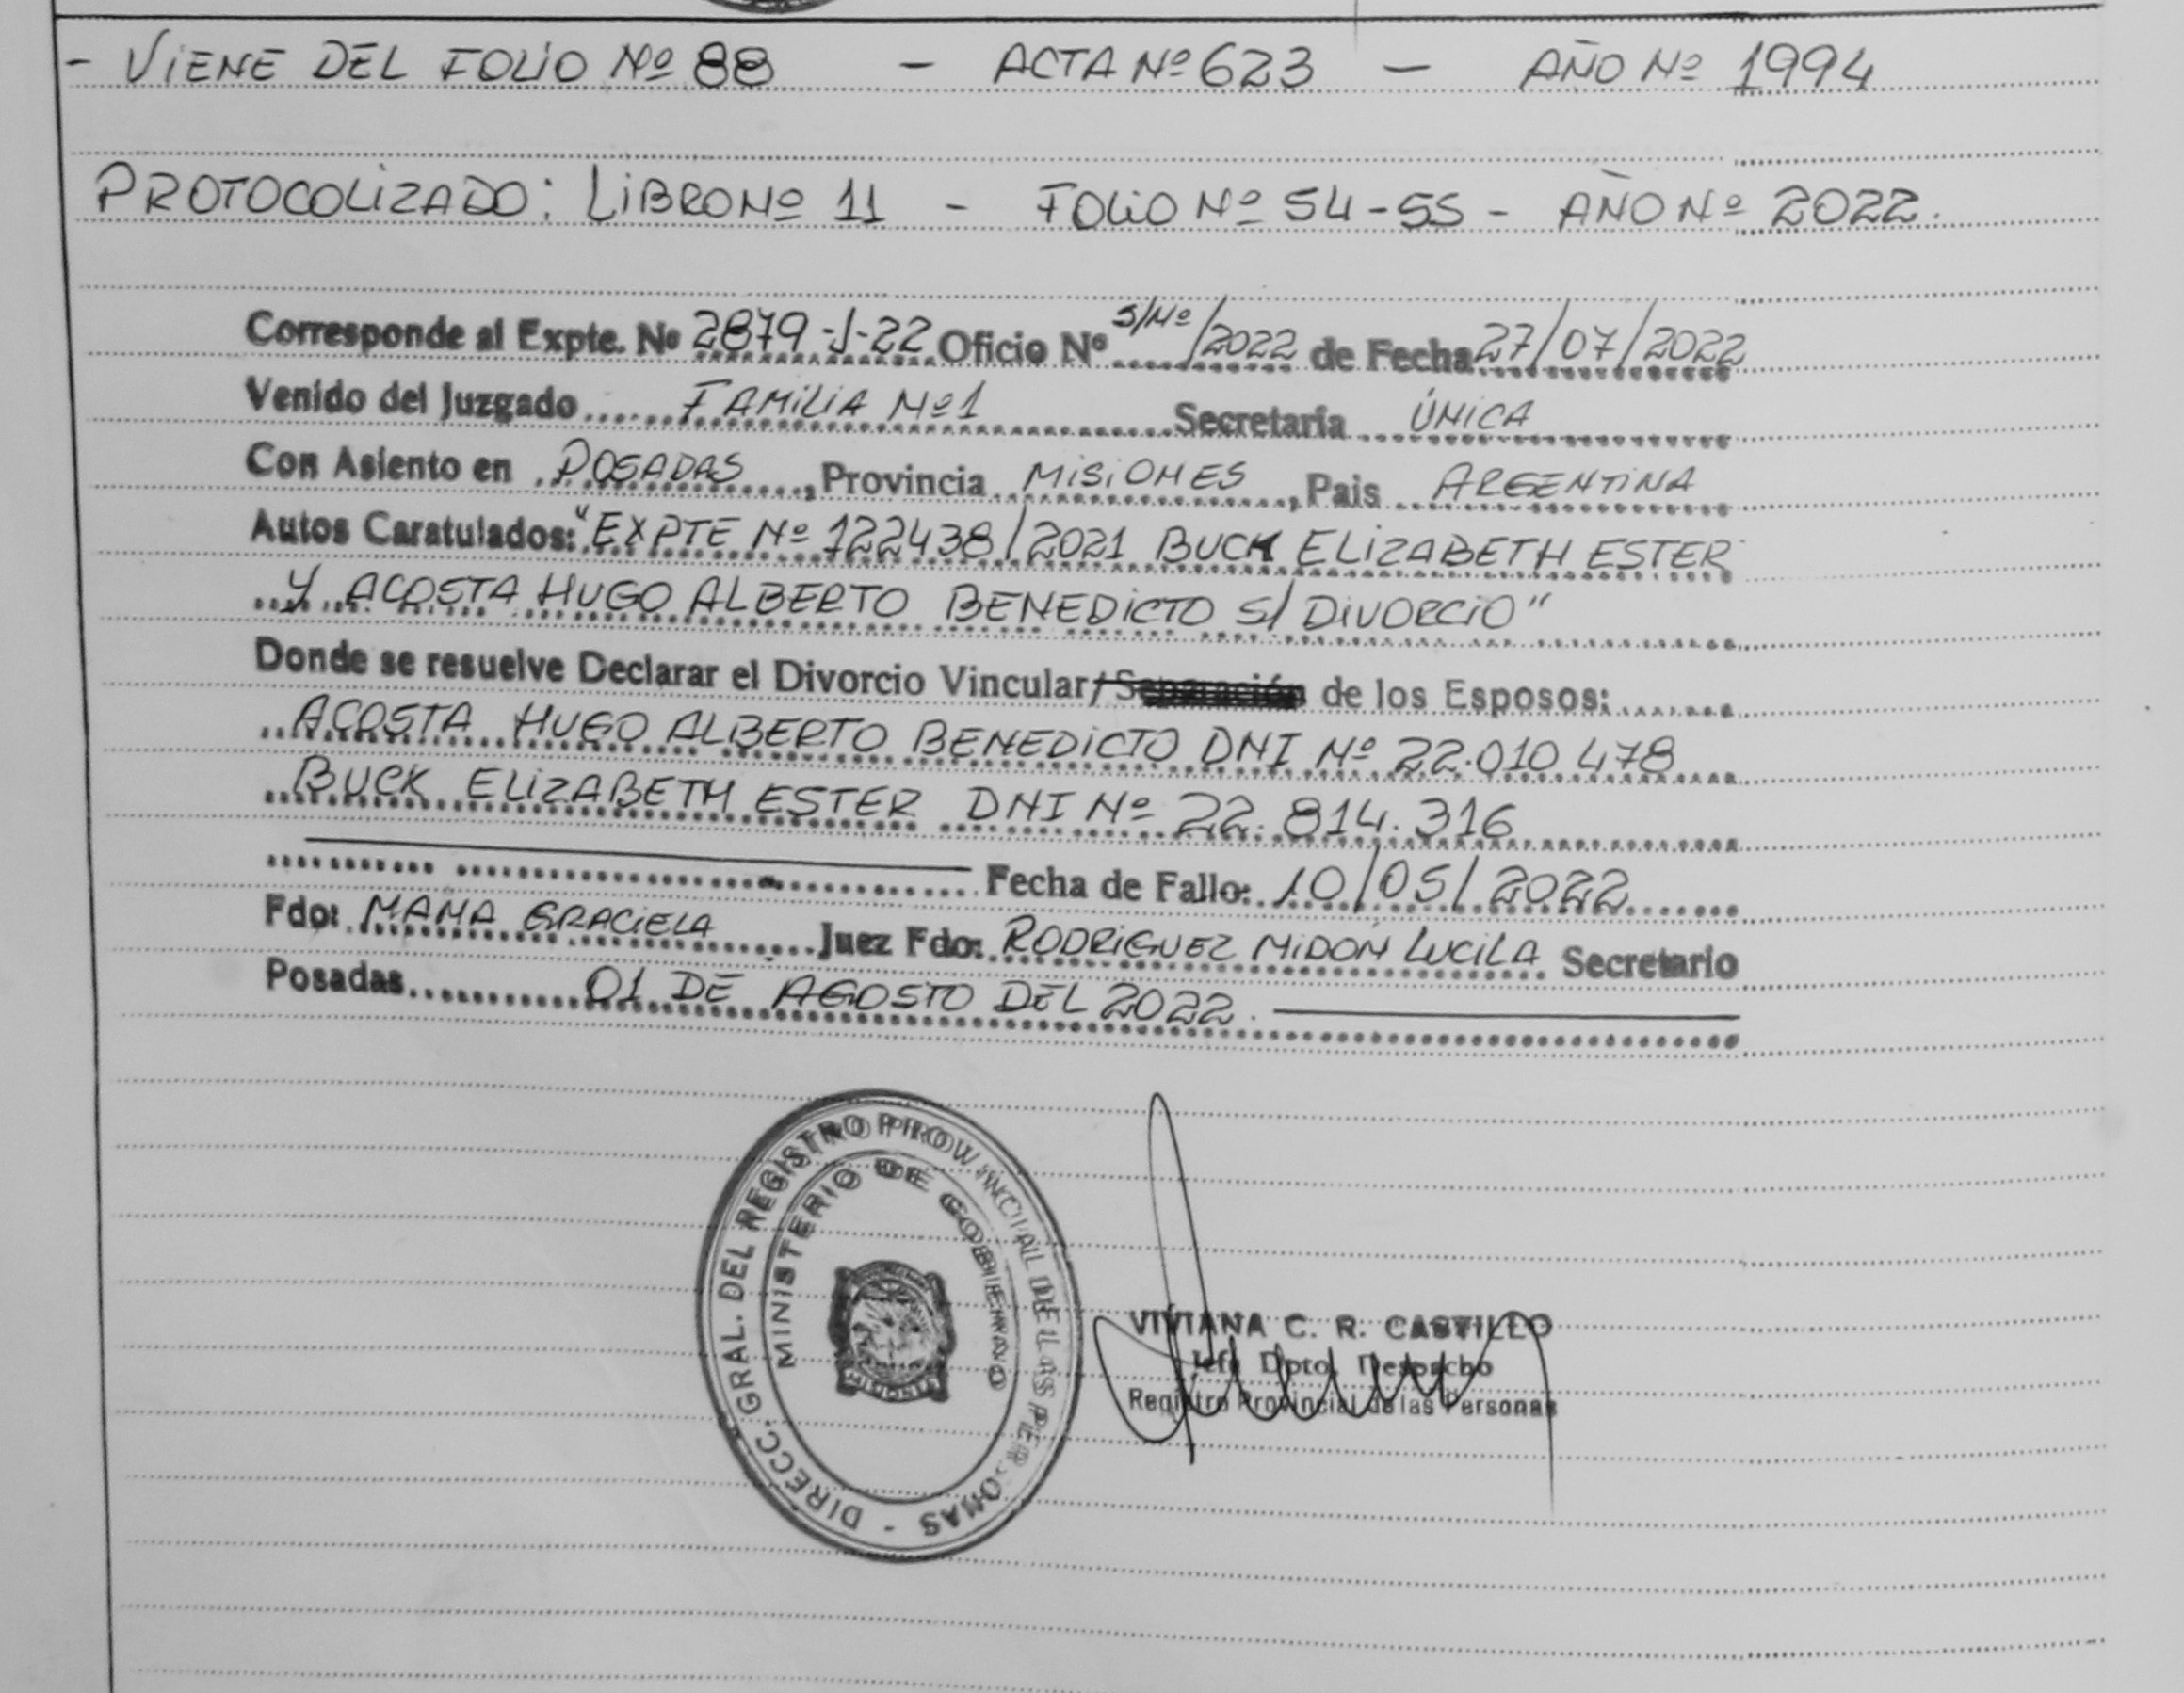 - VIENE DEL FOLIO Nº 88 - ACTA Nº 623 - AÑO Nº 1994
PROTOCOLIZADO: LIBRO Nº 11 - FOLIO Nº 54-55 - AÑO Nº 2022.
Corresponde al Expte. Nº 2879-J-22 Oficio Nº S/Nº/2022 de Fecha 27/07/2022
Venido del Juzgado FAMILIA Nº1 Secretaría ÚNICA
Con Asiento en POSADAS, Provincia MISIONES, Pais ARGENTINA
Autos Caratulados: "EXPTE Nº 122438/2021 BUCK ELIZABETH ESTER
Y ACOSTA HUGO ALBERTO BENEDICTO S/ DIVORCIO"
Donde se resuelve Declarar el Divorcio Vincular/Separación de los Esposos:
ACOSTA HUGO ALBERTO BENEDICTO DNI Nº 22.010.478
BUCK ELIZABETH ESTER DNI Nº 22.814.316
Fecha de Fallo: 10/05/2022
Fdo: MAÑA GRACIELA Juez Fdo: RODRIGUEZ MIDÓN LUCILA Secretario
Posadas 01 DE AGOSTO DEL 2022.
DIRECC. GRAL. DEL REGISTRO PROVINCIAL DE LAS PERSONAS -
MINISTERIO DE GOBIERNO
MISIONES
VIVIANA C. R. CASTILLO
Jefe Dpto. Despacho
Registro Provincial de las Personas